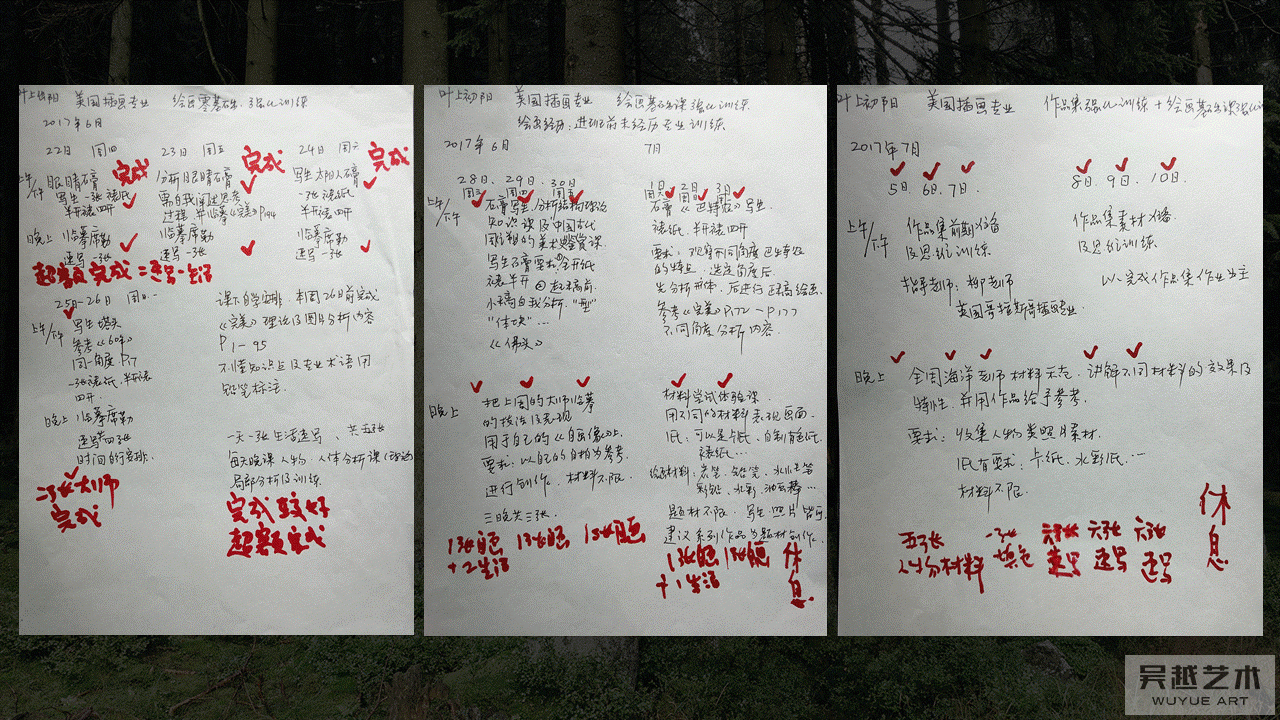 叶上初阳 美国插画专业 绘画零基础 强化训练
2017年6月
22日 周四 23日 周五 24日 周六
完成 完成 完成
上午/下午
眼睛石膏
写生一张 裱纸
半开裱 四开
分析眼睛石膏
要自我阐述思考
过程 并临摹《完美》P194
写生 太阳人石膏
一张裱纸
半开裱四开
晚上 临摹席勒
速写一张
临摹席勒
速写一张
临摹席勒
速写一张
超额完成 二速写一生活
25日-26日 周日.一
上午/下午
写生 塔头
参考《60年》
同一角度 P17
一张裱纸,半开裱
四开.
晚上 临摹席勒
速写共四张
时间自行安排.
二张大师
完成
课下自学安排 本周26日前完成
《完美》理论及图片分析内容
P1-95
不懂知识点及专业术语用
铅笔标注.
一天一张生活速写、共五张
每天晚课人物、人体分析课
局部分析及训练
完成较好
超额完成
叶上初阳 美国插画专业 绘画基础课 强化训练
绘画经历:进班前未经历专业训练
2017年6月 7月
28日、29日、30日
周三 周四 周五
上午/下午
石膏写生/分析结构理论
知识课及中国古代
同主题的美术鉴赏课
写生石膏要求:
裱半开
小稿自我分析."型"
"体块"...
《佛头》
1日 2日 3日
石膏《巴特农》写生.
裱纸.半开裱四开
要求:观察不同角度巴特农
的特点,选定角度后
先分析形体,后进行正稿绘画.
参考《完美》P172-P177
不同角度分析内容.
晚上
把上周的大师临摹
的技法及表现
用于自己的《自画像》上.
要求:以自己的自拍为参考.
进行创作,材料不限.
三晚共三张.
1张自画 1张自画 1张自画
+2生活
材料尝试体验课
用不同的材料表现画面.
纸:可以是卡纸、自制有色纸.
裱纸...
绘画材料:炭笔、铅笔、水小毛笔
彩铅、水彩、油画棒...
题材不限,写生.照片皆可.
建议系列作品为题材创作.
1张自画 1张自画
+1生活
休息
叶上初阳 美国插画专业 作品集强化训练+绘画基础课强化
2017年7月
5日 6日 7日.
8日、9日、10日.
上午/下午
作品集前期准备
及思维训练
指导老师:柳老师
美国哥伦斯哥插画专业.
作品集素材准备
及思维训练.
以完成作品集作业为主
晚上
金周海洋老师材料示范,讲解不同材料的效果及
特性,并用作品给予参考.
要求:收集人物类照片素材.
纸有要求:卡纸、水彩纸...
材料不限.
五张
人物材料
一张
填色
六张
速写
六张
速写
六张
速写
休息
吴越艺术
WUYUE ART